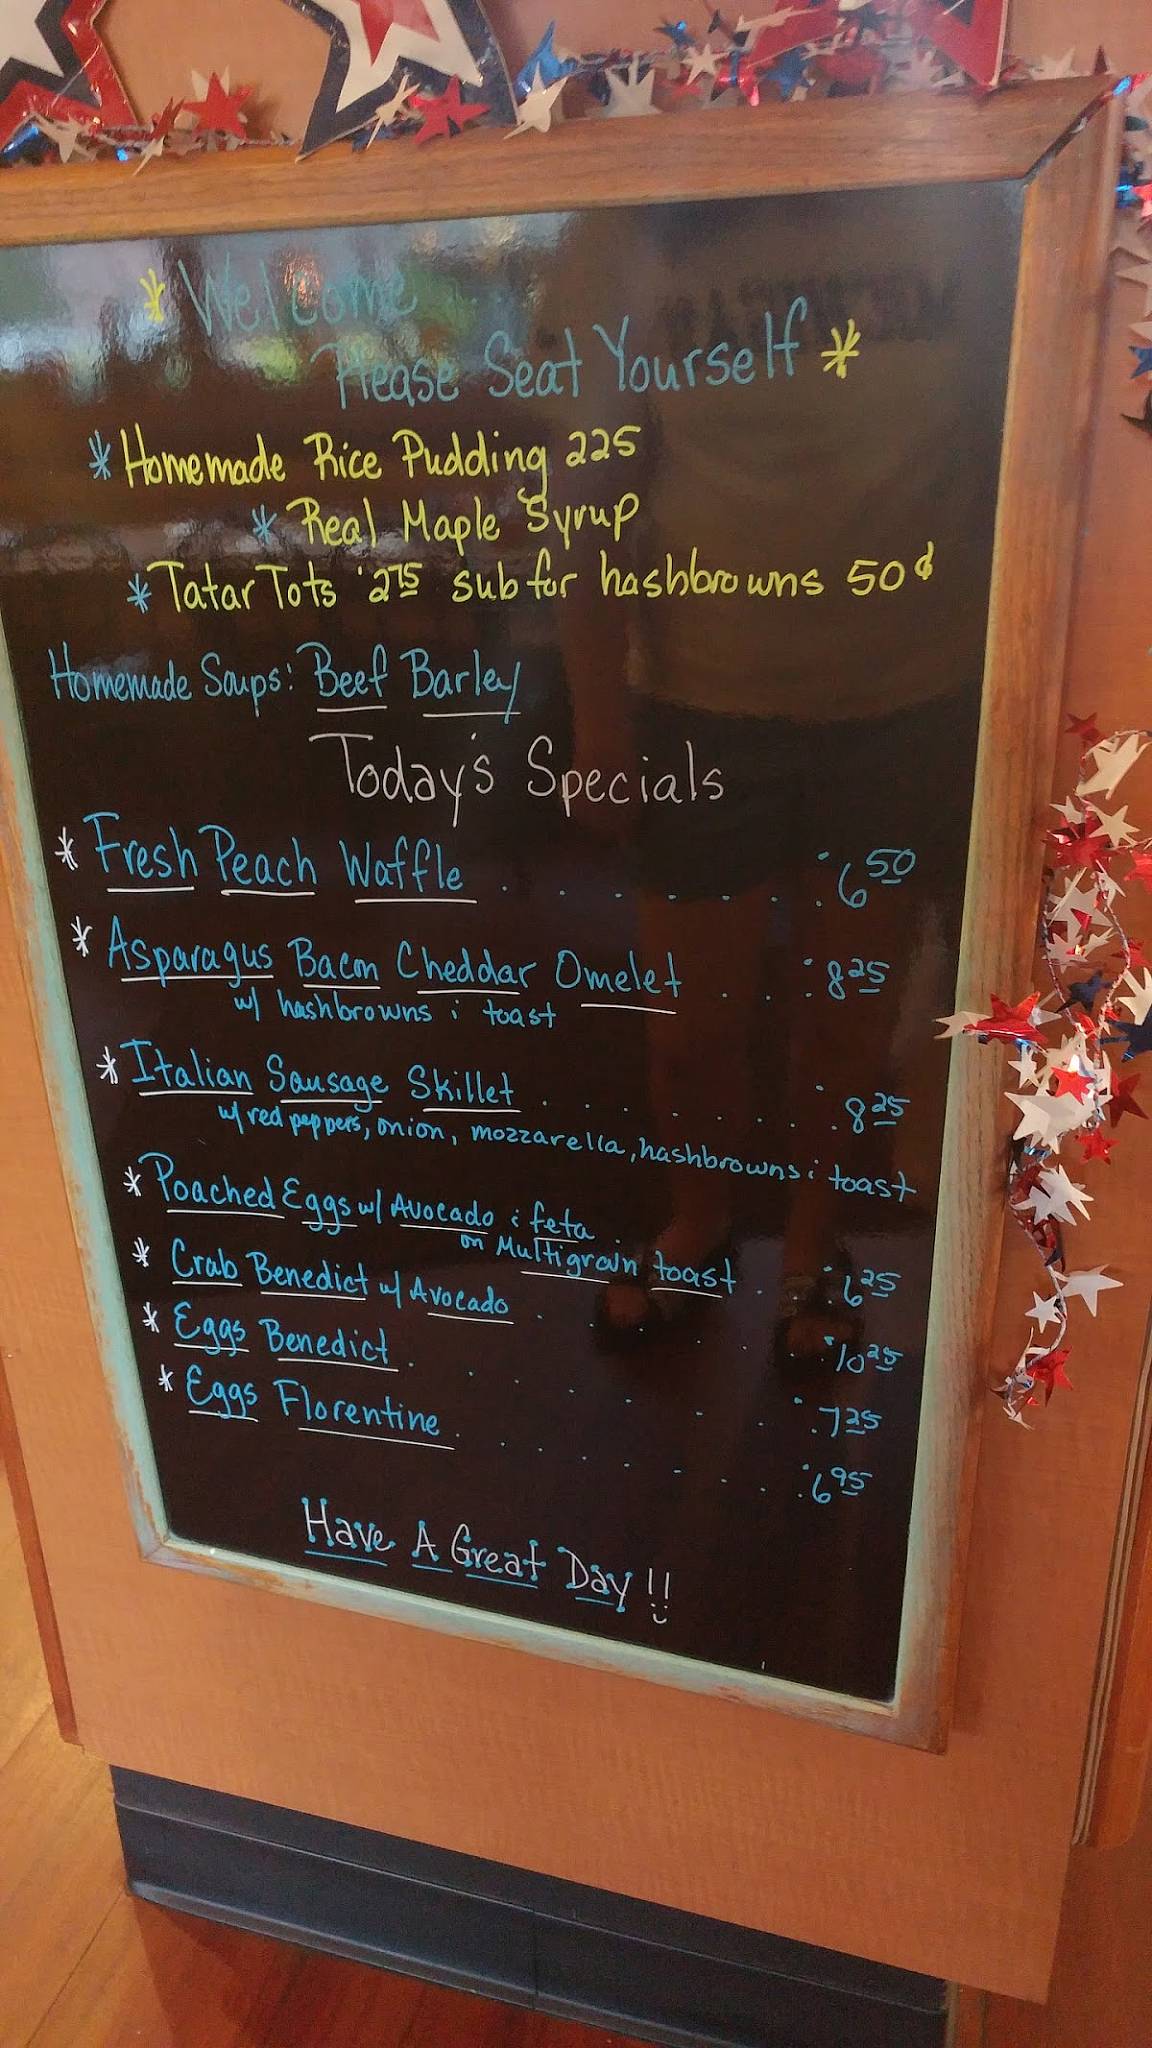 * Welcome
Please Seat Yourself *
* Homemade Rice Pudding 225
* Real Maple Syrup
* Tatar Tots 275 sub for hashbrowns 50¢
Homemade Soups: Beef Barley
Today's Specials
* Fresh Peach Waffle . . . . . . . 650
* Asparagus Bacon Cheddar Omelet . . . 825
w/ hashbrowns & toast
* Italian Sausage Skillet . . . . . . . . 825
w/ red peppers, onion, mozzarella, hashbrowns & toast
* Poached Eggs w/ Avocado & feta
on Multigrain toast . . 625
* Crab Benedict w/ Avocado . . . . . . . 1025
* Eggs Benedict . . . . . . . 725
* Eggs Florentine . . . . . . . 695
Have A Great Day !!